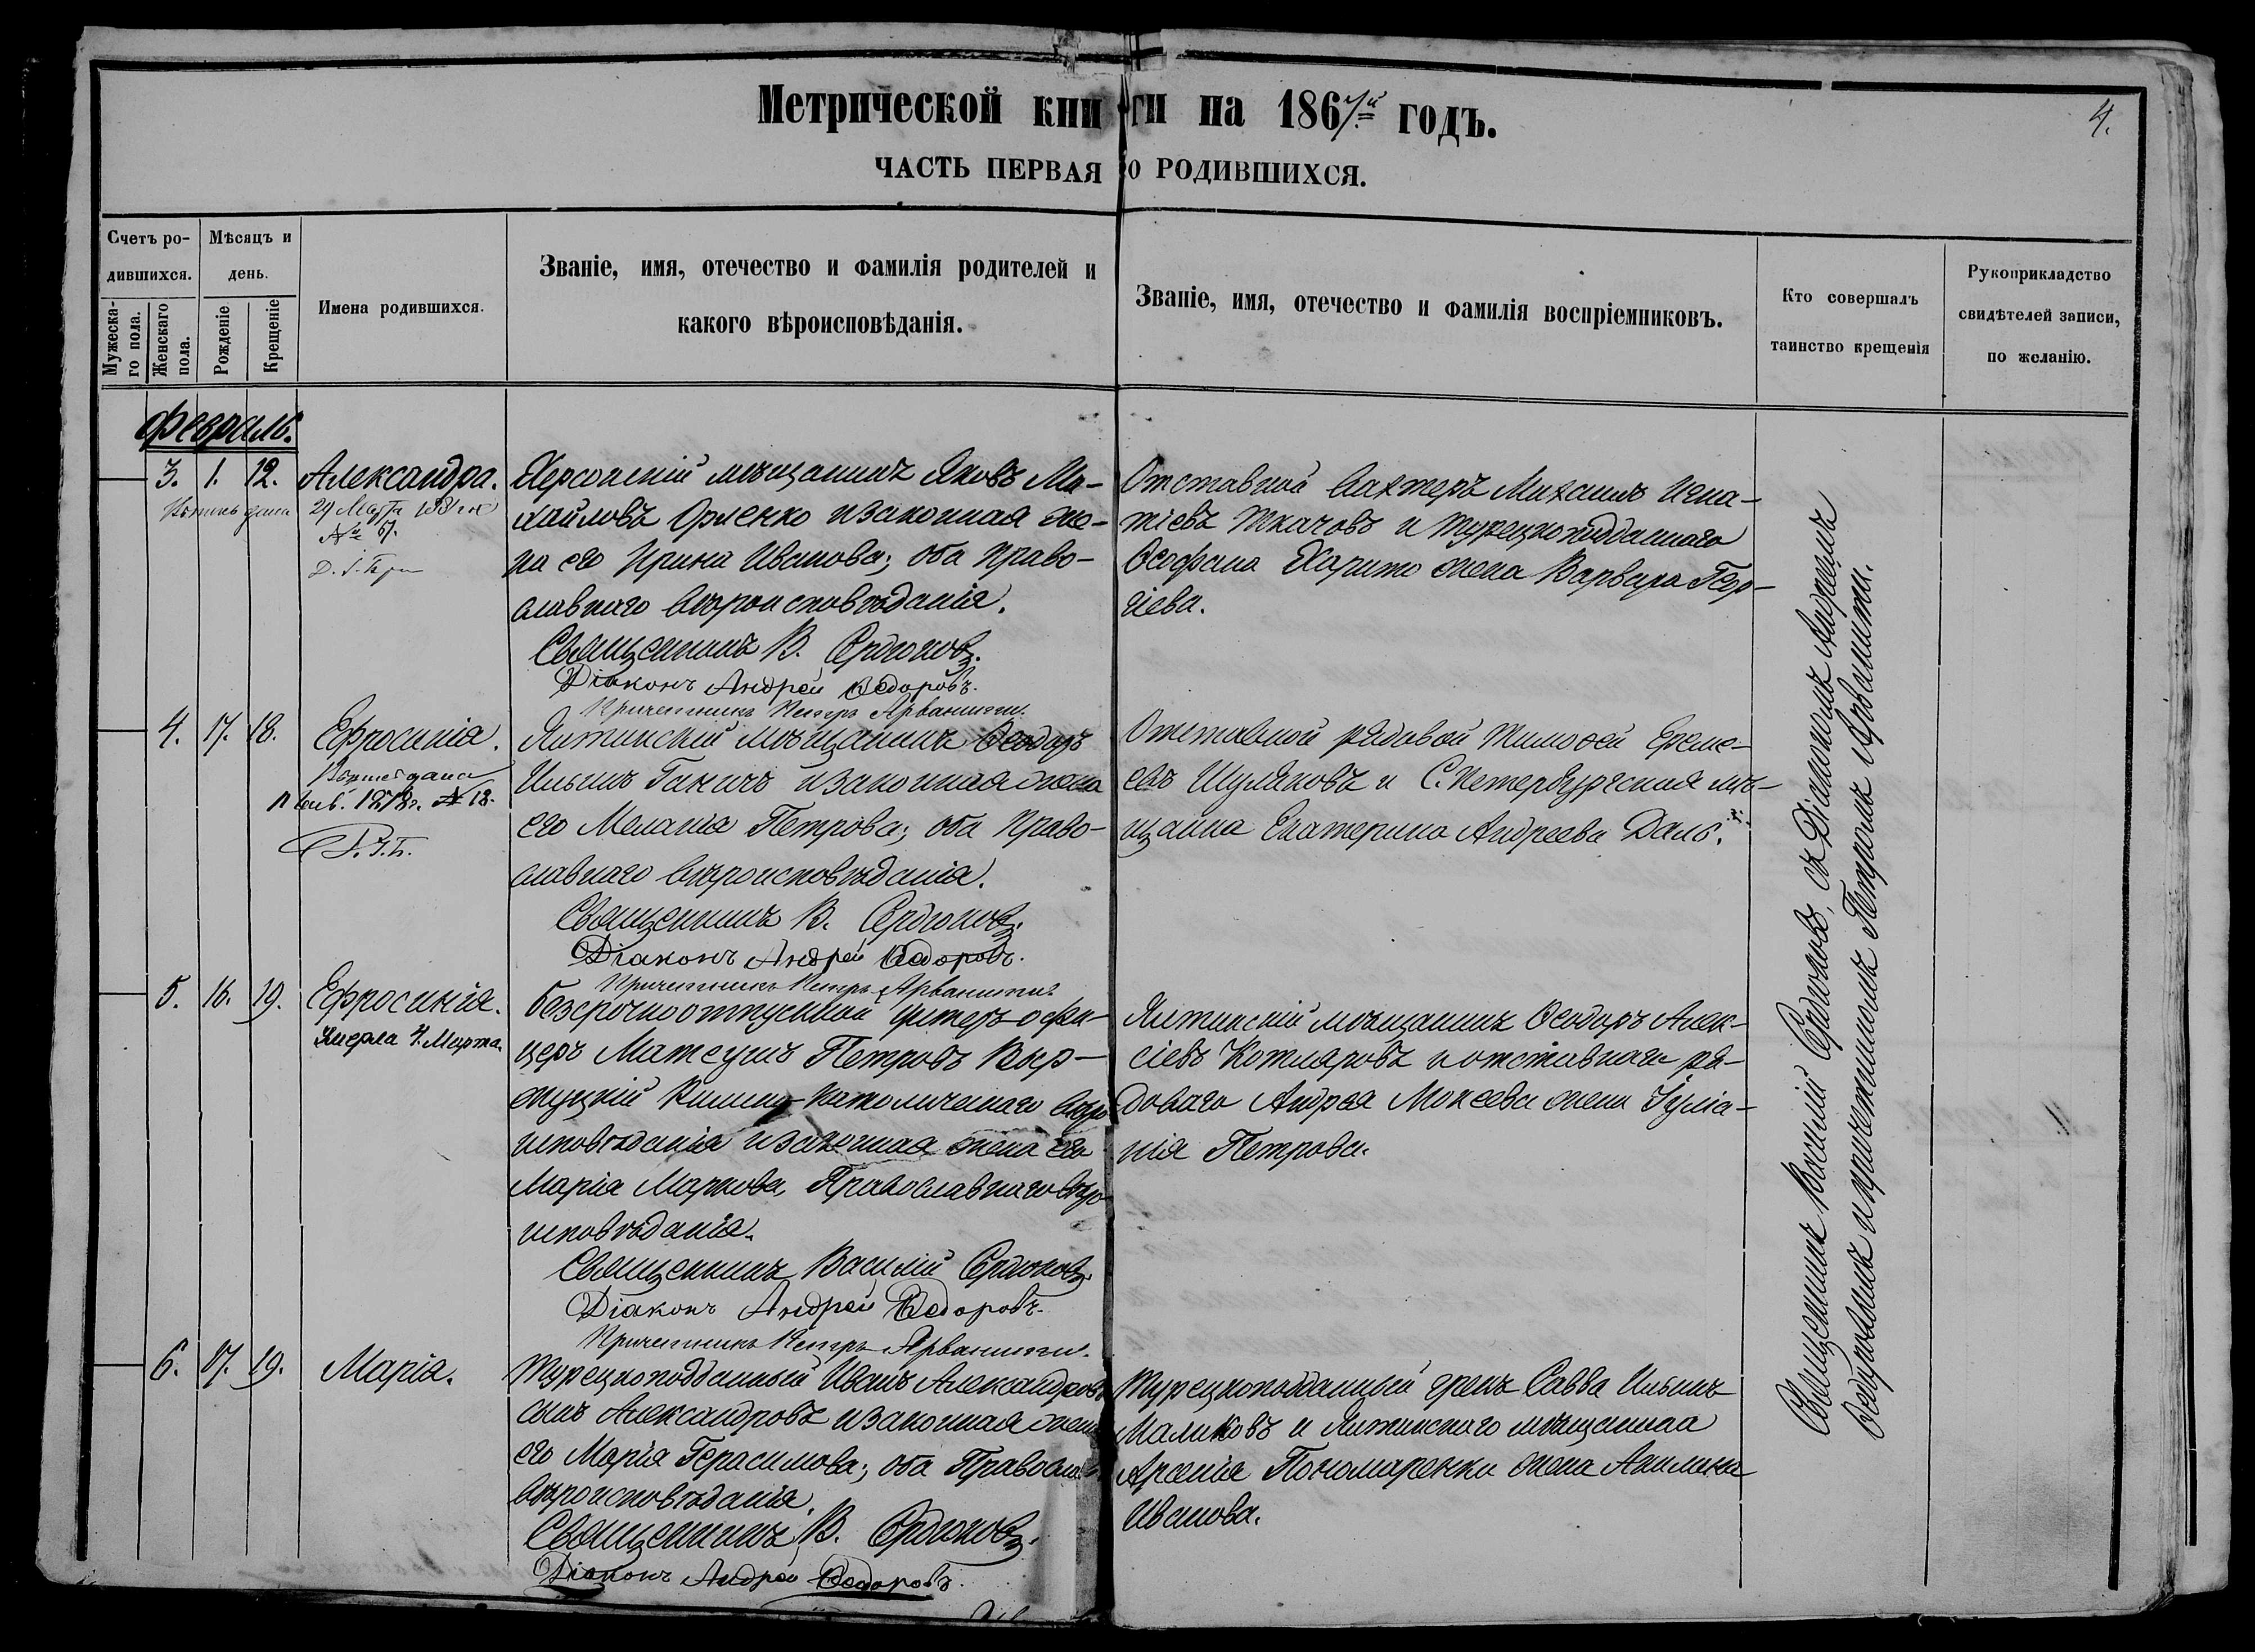 Метрической книги на 1867й годъ.
4.
ЧАСТЬ ПЕРВАЯ О РОДИВШИХСЯ.
Счетъ ро-
дившихся.
Мужеска-
го пола.
Женскаго
пола.
Мѣсяцъ и
день.
Рожденіе
Крещеніе
Имена родившихся.
Званіе, имя, отечество и фамилія родителей и
какого вѣроисповѣданія.
Званіе, имя, отечество и фамилія воспріемниковъ.
Кто совершалъ
таинство крещенія
Рукоприкладство
свидѣтелей записи,
по желанію.
Февраль.
3. 1. 12. Александра.
дана 21 Марта
№ 67.
Херсонскій мѣщанинъ Яковъ Ми-
хайловъ Орленко и законная же-
на его Ирина Иванова; оба Право-
славнаго вѣроисповѣданія.
Священникъ В. Сердюковъ.
Діаконъ Андрей Ѳедоровъ.
Причетникъ Петръ Арванити.
Отставной Вахтеръ Михаилъ Игна-
тіевъ Ткачовъ и турецкоподданнаго
Ѳеофана Харито жена Варвара Геор-
гіева.
4. 17. 18. Ефросинія.
дана
1878г. № 12.
Ялтинскій мѣщанинъ Ѳеодоръ
Ильинъ Ганичъ и законная жена
его Меланія Петрова; оба Право-
славнаго вѣроисповѣданія.
Священникъ В. Сердюковъ.
Діаконъ Андрей Ѳедоровъ.
Причетникъ Петръ Арванити.
Отставной рядовой Тимоѳей Ереме-
евъ Шуляковъ и С.Петербургская мѣ-
щанка Екатерина Андреева Даль.
5. 16. 19. Ефросинія.
Умерла 4. Марта.
Безсрочноотпускной унтеръ-офи-
церъ Матеушъ Петровъ Выр-
жуцкій Римско-Католическаго вѣро
исповѣданія и законная жена его
Марія Маркова, Православнаго вѣро-
исповѣданія.
Священникъ Василій Сердюковъ.
Діаконъ Андрей Ѳедоровъ.
Причетникъ Петръ Арванити.
Ялтинскій мѣщанинъ Ѳеодоръ Алек-
сіевъ Котляровъ и отставнаго ря-
доваго Андрея Мокеева жена Іуліа-
нія Петрова.
6. 17. 19. Марія.
Турецкоподданный Иванъ Александровъ
сынъ Александровъ и законная жена
его Марія Герасимова; оба Правосла
вѣроисповѣданія.
Священникъ В. Сердюковъ.
Діаконъ Андрей Ѳедоровъ.
Турецкоподданный грекъ Савва Ильинъ
Маликовъ и Ялтинскаго мѣщанина
Арсенія Пономаренки жена Акилина
Иванова.
Священникъ Василій Сердюковъ, съ Діакономъ Андреемъ
Ѳедоровымъ и причетникомъ Петромъ Арванити.